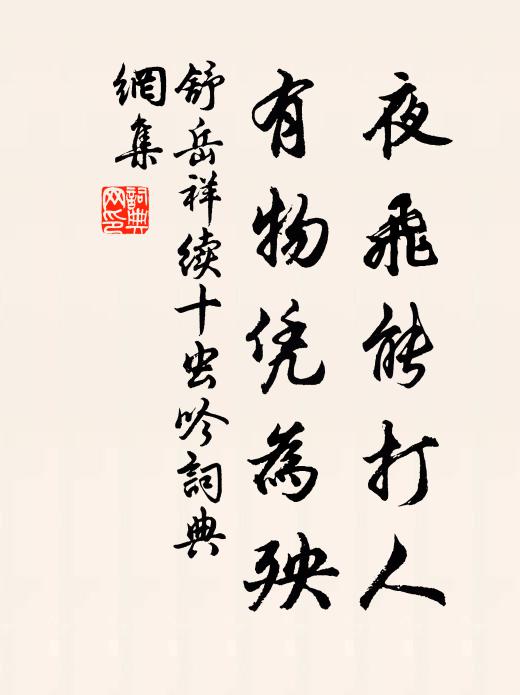 夜飛能打人
有物凭為殃
舒岳祥续十虫吟詞典
網集
詞典網印